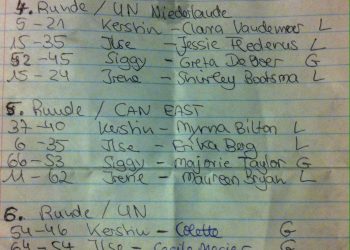 4. Runde / UN Niederlande
5-21 Kershin - Clara Vandemeer L
15-35 Ilse - Jessie Frederus L
52-45 Siggy - Greta De Boer G
15-24 Irene - Shirley Bootsma L
5. Runde / CAN EAST
37-40 Kershin - Myrna Bilton L
6-35 Ilse - Erika Berg L
66-53 Siggy - Marjorie Taylor G
11-62 Irene - Maureen Bryan L
6. Runde / UN
54-46 Kershin - Colette G
64-54 Ilse - Cecile G